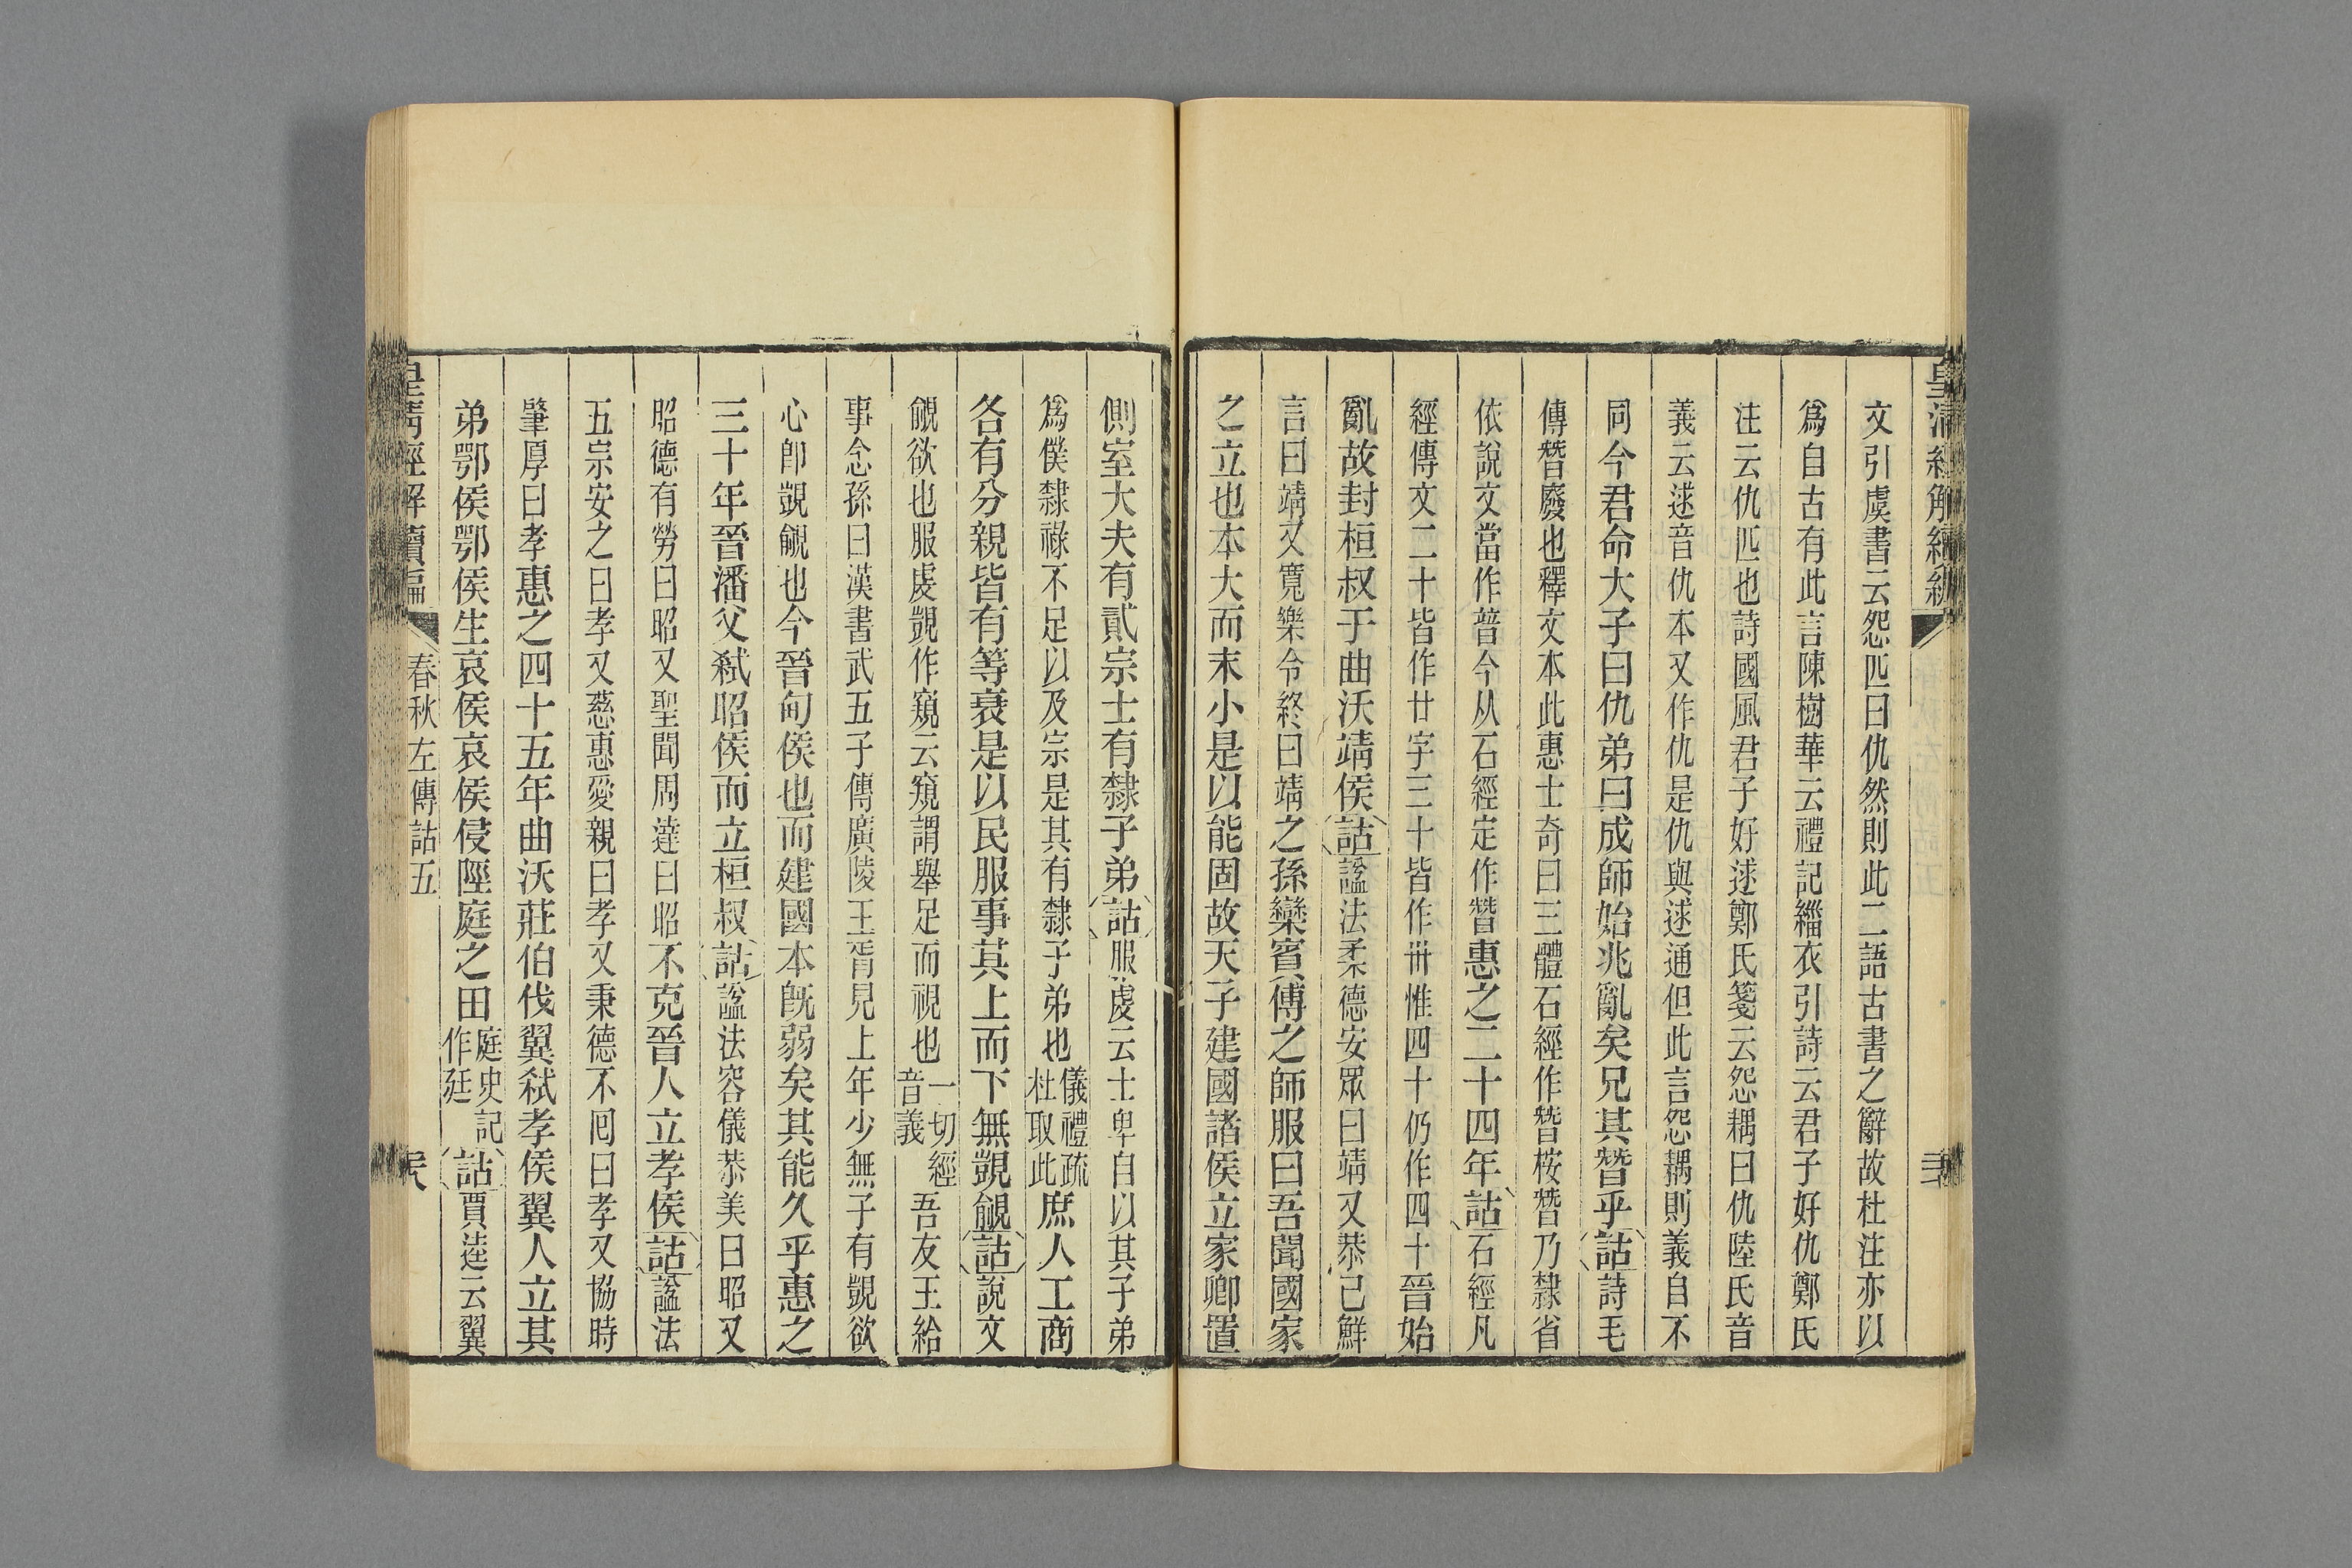 皇清經解續編
文引虞書云怨匹曰仇然則此二語古書之辭故杜注亦以
爲自古有此言陳樹華云禮記緇衣引詩云君子好仇鄭氏
注云仇匹也詩國風君子好逑鄭氏箋云怨耦曰仇陸氏音
義云逑音仇本又作仇是仇與逑通但此言怨耦則義自不
同今君命大子曰仇弟曰成師始兆亂矣兄其朁乎詁詩毛
傳朁廢也釋文本此惠士奇曰三體石經作朁桉朁乃隸省
依說文當作暜今从石經定作朁惠之二十四年詁石經凡
經傳文二十皆作廿字三十皆作卅惟四十仍作四十晉始
亂故封桓叔于曲沃靖侯詁諡法柔德安眾曰靖又恭己鮮
言曰靖又寬樂令終曰靖之孫欒賓傅之師服曰吾聞國家
之立也本大而末小是以能固故天子建國諸侯立家卿置
側室大夫有貳宗士有隸子弟詁服虔云士卑自以其子弟
爲僕隸祿不足以及宗是其有隸子弟也儀禮疏杜取此庶人工商
各有分親皆有等衰是以民服事其上而下無覬覦詁說文
覦欲也服虔覬作窺云窺謂舉足而視也一切經音義吾友王給
事念孫曰漢書武五子傳廣陵王胥見上年少無子有覬欲
心卽覬覦也今晉甸侯也而建國本旣弱矣其能久乎惠之
三十年晉潘父弒昭侯而立桓叔詁諡法容儀恭美曰昭又
昭德有勞曰昭又聖聞周達曰昭不克晉人立孝侯詁諡法
五宗安之曰孝又慈惠愛親曰孝又秉德不囘曰孝又協時
肇厚曰孝惠之四十五年曲沃莊伯伐翼弒孝侯翼人立其
弟鄂侯鄂侯生哀侯哀侯侵陘庭之田庭史記作廷詁賈逵云翼
皇清經解續編 春秋左傳詁五